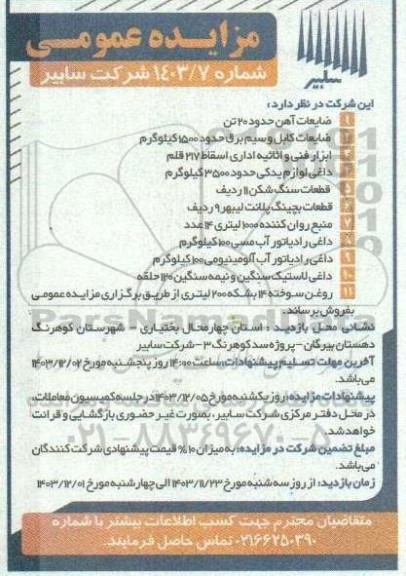 مزایده عمومی
شماره ۱۴۰۳/۷ شرکت سابیر
سابیر
این شرکت در نظر دارد:
۱ ضایعات آهن حدود ۲۰ تن
۲ ضایعات کابل و سیم برق حدود ۱۵۰۰ کیلوگرم
۳ ابزار فنی و اثاثیه اداری اسقاط ۲۱۷ قلم
۴ داغی لوازم یدکی حدود ۳۵۰۰ کیلوگرم
۵ قطعات سنگ شکن ۱۱ ردیف
۶ قطعات بچینگ پلانت لیبهر ۹ ردیف
۷ منبع روان کننده ۱۰۰۰ لیتری ۱۴ عدد
۸ داغی رادیاتور آب مسی ۱۰۰ کیلوگرم
۹ داغی رادیاتور آب آلومینیومی ۱۰۰ کیلوگرم
۱۰ داغی لاستیک سنگین و نیمه سنگین ۱۲۰ حلقه
۱۱ روغن سوخته ۱۴ بشکه ۲۰۰ لیتری از طریق برگزاری مزایده عمومی
بفروش برساند.
نشانی محل بازدید: استان چهارمحال بختیاری - شهرستان کوهرنگ
دهستان بیرگان - پروژه سد کوهرنگ ۳ - شرکت سابیر
آخرین مهلت تسلیم پیشنهادات: ساعت ۱۴:۰۰ روز پنجشنبه مورخ ۱۴۰۳/۱۲/۰۲
می‌باشد.
پیشنهادات مزایده: روز یکشنبه مورخ ۱۴۰۳/۱۲/۰۵ در جلسه کمیسیون معاملات،
در محل دفتر مرکزی شرکت سابیر، بصورت غیر حضوری بازگشایی و قرائت
خواهد شد.
مبلغ تضمین شرکت در مزایده: به میزان ۱۰٪ قیمت پیشنهادی شرکت کنندگان
می‌باشد.
زمان بازدید: از روز سه شنبه مورخ ۱۴۰۳/۱۱/۲۳ الی چهارشنبه مورخ ۱۴۰۳/۱۲/۰۱
متقاضیان محترم جهت کسب اطلاعات بیشتر با شماره
۰۲۱۶۶۲۵۰۳۹۰ تماس حاصل فرمایند.
ParsNamadData
۰۲۱-۸۸۳۴۹۶۷۰-۵